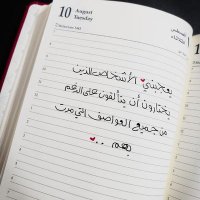 10 August
Tuesday
يعجبني الأشخاص الذين
يختارون أن يتألقون على الرغم
من جميع العواصف التي مرت
بهم ..